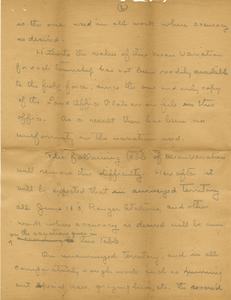 (2)
is the one used in all work where accuracy
is desired.
Hitherto the value of this mean variation
for each township has not been readily available
to the field force, since the one and only copy
of the Land Office Plats are on file in this
office. As a result there has been no
uniformity in the variation used.
The following table of mean variations
will remove this difficulty. Hereafter it
will be expected that in surveyed territory
all June 11's Ranger Stations and other
work where accuracy is desired will be run
on the variations given in
this table.
In unsurveyed territory, and in all
comparatively rough work such as running
out special uses, grazing lines, etc. the